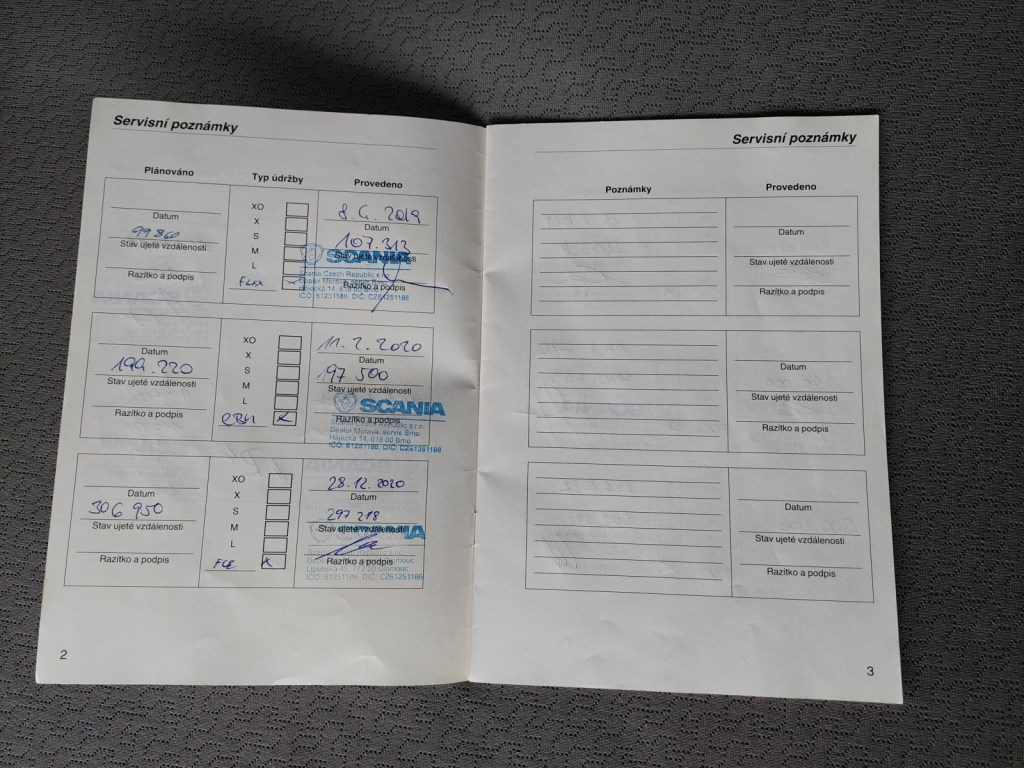 Servisní poznámky
Plánováno
Typ údržby
Provedeno
Datum
99 860
Stav ujeté vzdálenosti
Razítko a podpis
XO
X
S
M
L
8. 4. 2019
Datum
107.313
Stav ujeté vzdálenosti
SCANIA
Scania Czech Republic s.r.o.
Hájecká 14, 618 00 Brno
IČO: 61251186, DIČ: CZ61251186
Razítko a podpis
Datum
199.220
Stav ujeté vzdálenosti
Razítko a podpis
XO
X
S
M
L
11. 2. 2020
Datum
197 500
Stav ujeté vzdálenosti
SCANIA
Razítko a podpis
Republic s.r.o.
Dealer Morava, servis Brno
Hájecká 14, 618 00 Brno
IČO: 61251186, DIČ: CZ61251186
Datum
306 950
Stav ujeté vzdálenosti
Razítko a podpis
XO
X
S
M
L
28.12.2020
Datum
297 218
Stav ujeté vzdálenosti
Razítko a podpis
Lipenská 45, 772 00 Olomouc
IČO: 61251186, DIČ: CZ61251186
2
Servisní poznámky
Poznámky
Provedeno
Datum
Stav ujeté vzdálenosti
Razítko a podpis
Datum
Stav ujeté vzdálenosti
Razítko a podpis
Datum
Stav ujeté vzdálenosti
Razítko a podpis
3